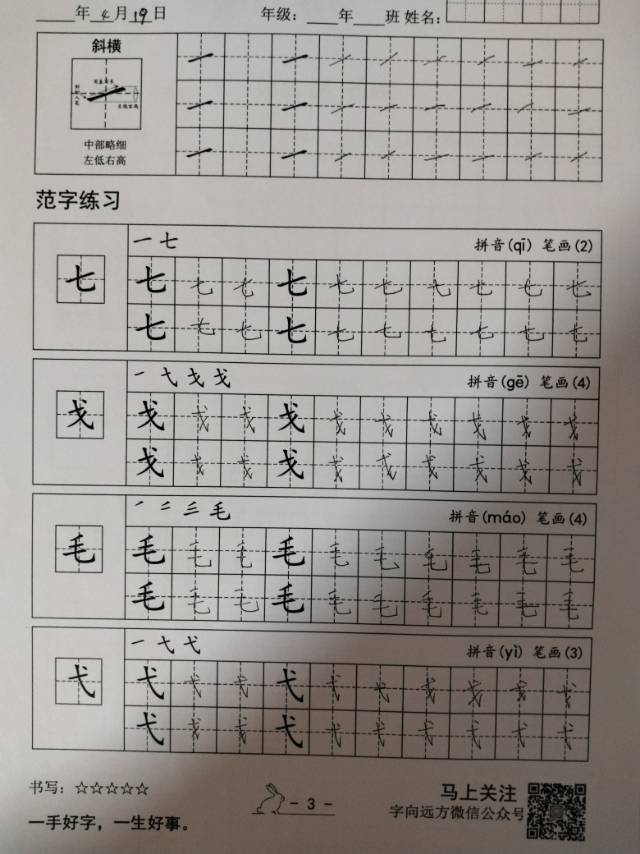 年4月19日 年级：____年____班 姓名：
斜横
中部略细
左低右高
范字练习
一 七 拼音(qī) 笔画(2)
七 七 七 七 七 七 七 七 七 七 七
七 七 七 七 七 七 七 七 七 七
一 弋 戈 戈 拼音(gē) 笔画(4)
戈 戈 戈 戈 戈 戈 戈 戈 戈 戈 戈
戈 戈 戈 戈 戈 戈 戈 戈 戈 戈
毛 拼音(máo) 笔画(4)
毛 毛 毛 毛 毛 毛 毛 毛 毛 毛 毛
毛 毛 毛 毛 毛 毛 毛 毛 毛 毛
一 七 弋 拼音(yì) 笔画(3)
弋 弋 弋 弋 弋 弋 弋 弋 弋 弋 弋
弋 弋 弋 弋 弋 弋 弋 弋 弋 弋
书写：☆☆☆☆☆
一手好字，一生好事。
- 3 -
马上关注
字向远方微信公众号